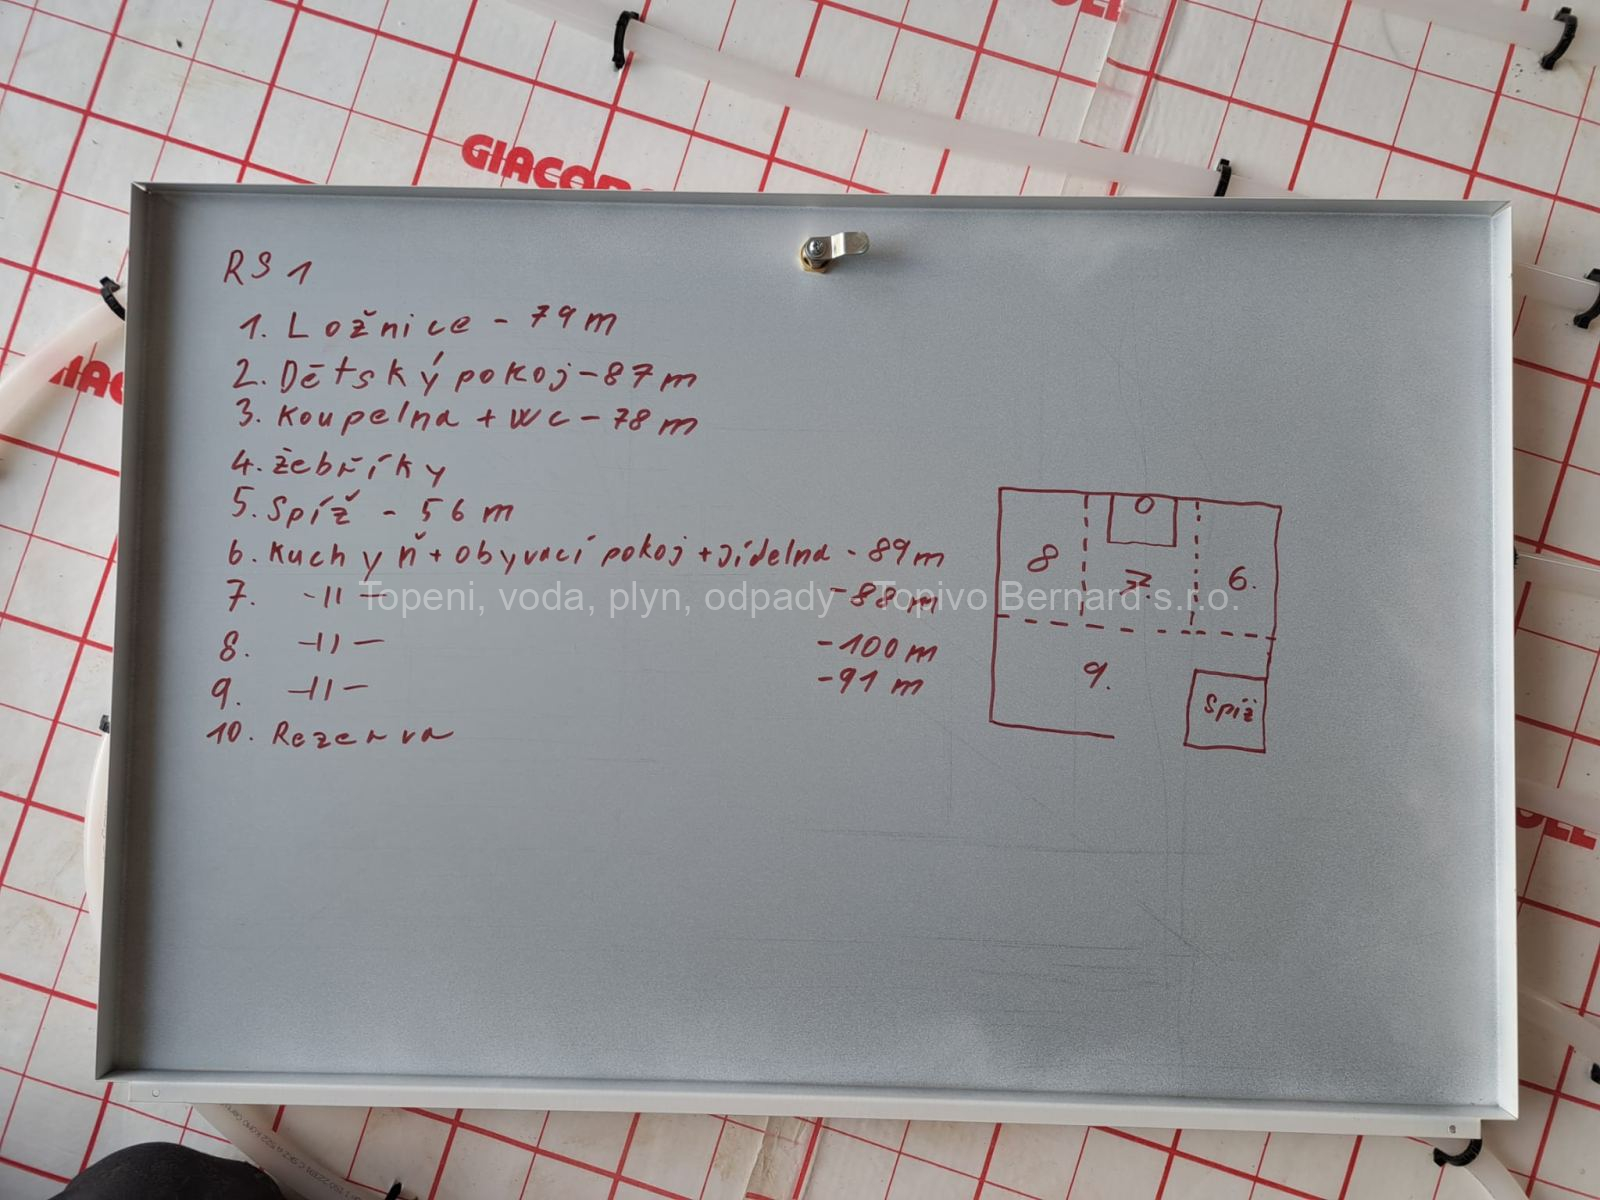 GIACOM
RS 1
1. Ložnice - 79 m
2. Dětský pokoj - 87 m
3. Koupelna + WC - 78 m
4. žebříky
5. Spíž - 56 m
6. Kuchyň + obyvací pokoj + jídelna - 89 m
7. -||- - 88 m
8. -||- - 100 m
9. -||- - 91 m
10. Rezerva
8
7.
6.
9.
Spíž
Topeni, voda, plyn, odpady - Topivo Bernard s.r.o.